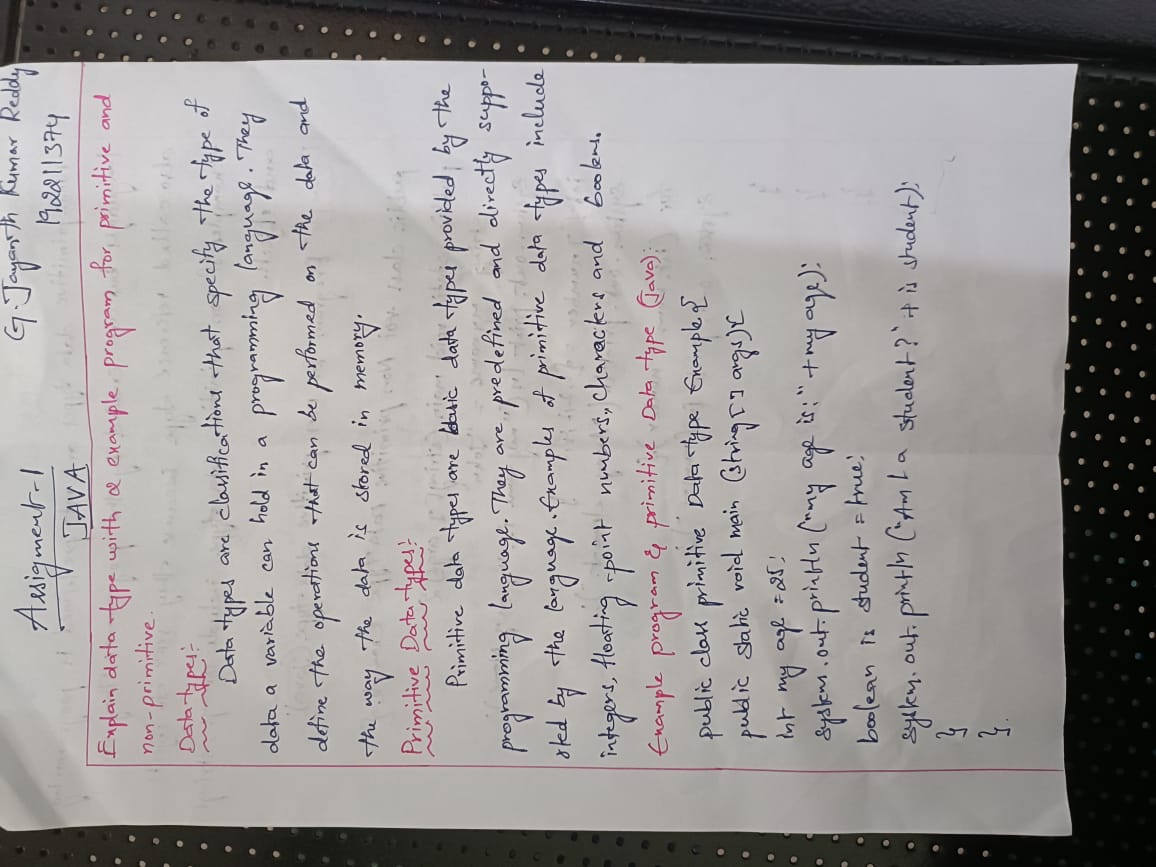 G. Jayanth Kumar Reddy
Assigment-1
192211374
JAVA
Explain data type with a example program for primitive and
non-primitive.
Data types:-
Data types are classifications that specify the type of
data a variable can hold in a programming language. They
define the operations that can be performed on the data and
the way the data is stored in memory.
Primitive Data types:-
Primitive data types are basic data types provided by the
programming language. They are predefined and directly suppo-
rted by the language. Examples of primitive data types include
integers, floating-point numbers, characters and booleans.
Example program & primitive Data type (Java):
public class primitive Data type Example{
public static void main (string [] args){
int my age = 25;
system.out.println ("my age is:" + my age);
boolean is student = true;
system.out.println ("Am I a student?" + is student);
}
}.